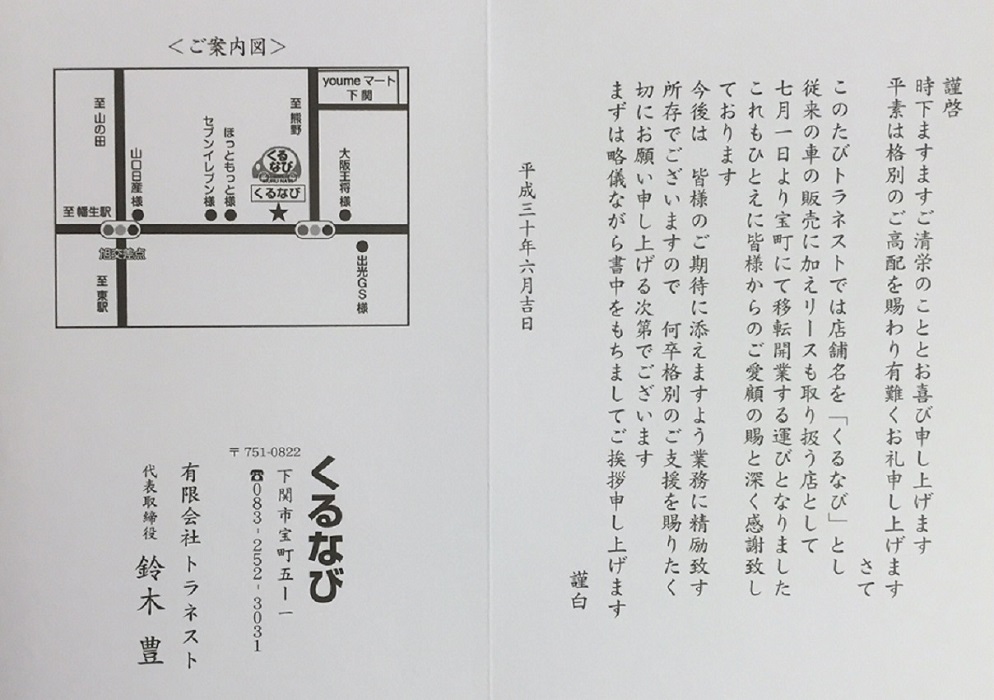 謹啓
時下ますますご清栄のこととお喜び申し上げます
平素は格別のご高配を賜わり有難くお礼申し上げます
さて
このたびトラネストでは店舗名を「くるなび」とし
従来の車の販売に加えリースも取り扱う店として
七月一日より宝町にて移転開業する運びとなりました
これもひとえに皆様からのご愛顧の賜と深く感謝致し
ております
今後は 皆様のご期待に添えますよう業務に精励致す
所存でございますので 何卒格別のご支援を賜りたく
切にお願い申し上げる次第でございます
まずは略儀ながら書中をもちましてご挨拶申し上げます
謹白
平成三十年六月吉日
＜ご案内図＞
youme マート
下関
至 熊野
大阪王将様
くるなび
くるなび
ほっともっと様
セブンイレブン様
山口日産様
至 山の田
至 幡生駅
旭交差点
至 東駅
出光GS様
くるなび
〒751-0822
下関市宝町五ー一
☎083-252-3031
有限会社 トラネスト
代表取締役 鈴木 豊